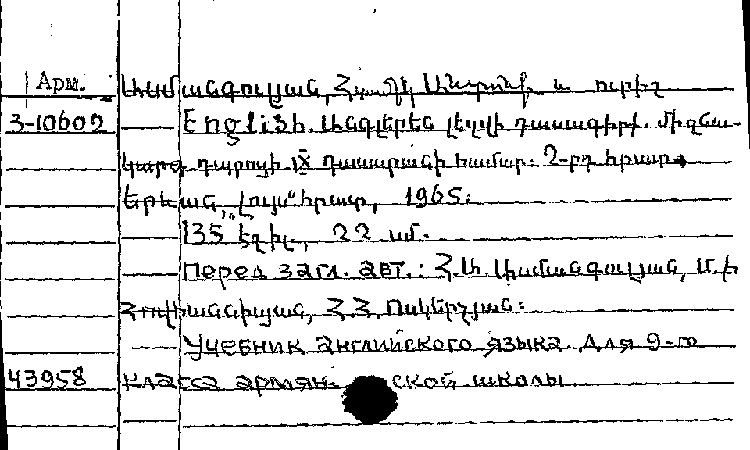 Арм. Ամանգուլյան, և ուրիշ
3-10602 English. Անգլերեն լեզվի դասագիրք. միջնա-
կարգ դպրոցի IX դասարանի համար: 2-րդ հրատ.
Երևան, „Լույս" հրատ, 1965:
135 եզիլ, 22 սմ.
Перед загл. авт.: Հ.Ա. Ամանգուլյան,
Հովհաննիսյան, Հ.Հ. Ոսկերչյան:
Учебник английского языка для 9-го
43958 класса армян- ской школы